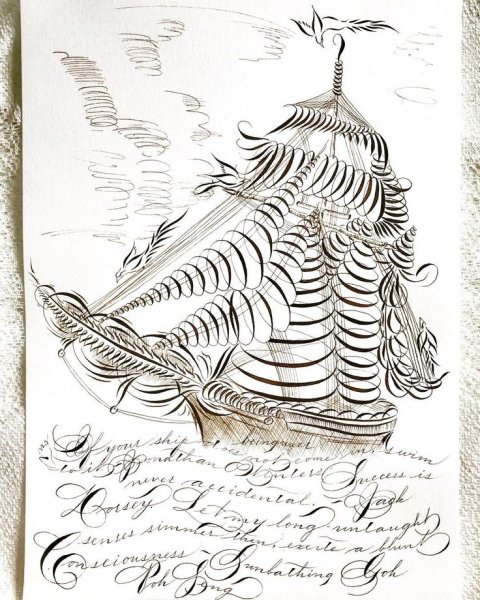 If your ship does not come in, swim
to it. Jonathan Winters Success is
never accidental, - Jack
Dorsey, Let my long untaught
senses simmer then, excite a blunt
Consciousness ~ Sunbathing Goh
Poh